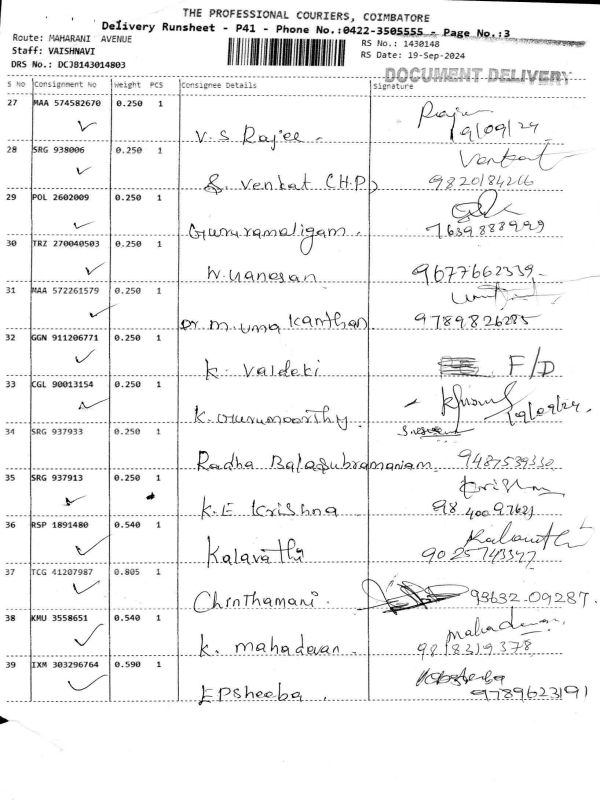 THE PROFESSIONAL COURIERS, COIMBATORE
Delivery Runsheet - P41 - Phone No.:0422-3505555 - Page No.:3
Route: MAHARANI AVENUE
RS No.: 1430148
Staff: VAISHNAVI
RS Date: 19-Sep-2024
DRS No.: DCJB143014803
DOCUMENT DELIVERY
S No Consignment No Weight PCS Consignee Details Signature
27 MAA 574582670 0.250 1
V.S Rajee. 19/09/24
28 SRG 938006 0.250 1 Venkat
S. Venkat (H.P) 9820184216
29 POL 2602009 0.250 1
Gururamaligam. 7639888999
30 TRZ 270040503 0.250 1
9677662339
31 MAA 572261579 0.250 1
Dr. M. Uma Kanthan 9789826285
32 GGN 911206771 0.250 1
K. Valdeki F/D
33 CGL 90013154 0.250 1
K. Gurumoorthy. 19/09/24.
34 SRG 937933 0.250 1
Radha Balasubramaniam 9487539330
35 SRG 937913 0.250 1 Krishna
K.E Krishna 98 400 97621
36 RSP 1891480 0.540 1 Kalavathi
Kalavathi 9025743347
37 TCG 41207987 0.805 1
Chinthamani. 93632-09287.
38 KMU 3558651 0.540 1 mahadevan.
K. mahadevan. 9818319378
39 IXM 303296764 0.590 1
E P Sheeba. 9789623191